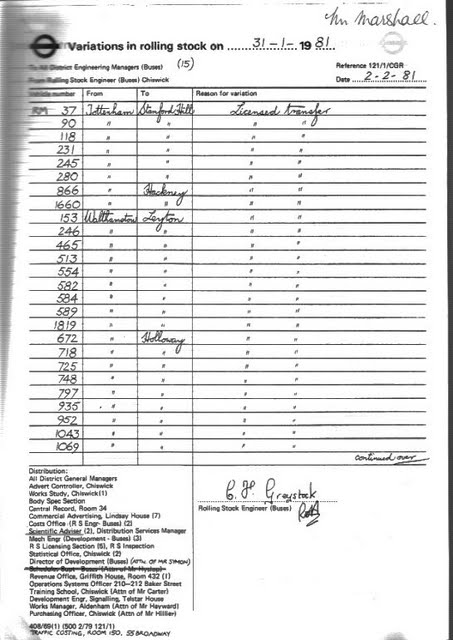 Mr Marshall.
Variations in rolling stock on 31-1-1981
To All District Engineering Managers (Buses) (15) Reference 121/1/CGR
From Rolling Stock Engineer (Buses) Chiswick Date 2-2-81
Vehicle number From To Reason for variation
RM 37 Tottenham Stamford Hill Licensed transfer
90 " " " "
118 " " " "
231 " " " "
245 " " " "
280 " " " "
866 " Hackney " "
1660 " " " "
153 Walthamstow Leyton " "
246 " " " "
465 " " " "
513 " " " "
554 " " " "
582 " " " "
584 " " " "
589 " " " "
1819 " " " "
672 " Holloway " "
718 " " " "
725 " " " "
748 " " " "
797 " " " "
935 " " " "
952 " " " "
1043 " " " "
1069 " " " "
continued over
Distribution:
All District General Managers
Advert Controller, Chiswick
Works Study, Chiswick (1)
Body Spec Section
Central Record, Room 34
Commercial Advertising, Lindsay House (7)
Costs Office (R S Engr- Buses) (2)
Scientific Adviser (2), Distribution Services Manager
Mech Engr (Development - Buses) (3)
R S Licensing Section (5), R S Inspection
Statistical Office, Chiswick (2)
Director of Development (Buses) (ATTN. OF MR SYMON)
Schedules Supt - Buses (Attn of Mr Hyslop)
Revenue Office, Griffith House, Room 432 (1)
Operations Systems Officer 210-212 Baker Street
Training School, Chiswick (Attn of Mr Carter)
Development Engr, Signalling, Telstar House
Works Manager, Aldenham (Attn of Mr Hayward)
Purchasing Officer, Chiswick (Attn of Mr Hillier)
C. H. Greystock
Rolling Stock Engineer (Buses)
408/89(1) (500 2/79 121/1)
TRAFFIC COSTING, ROOM 150, 55 BROADWAY